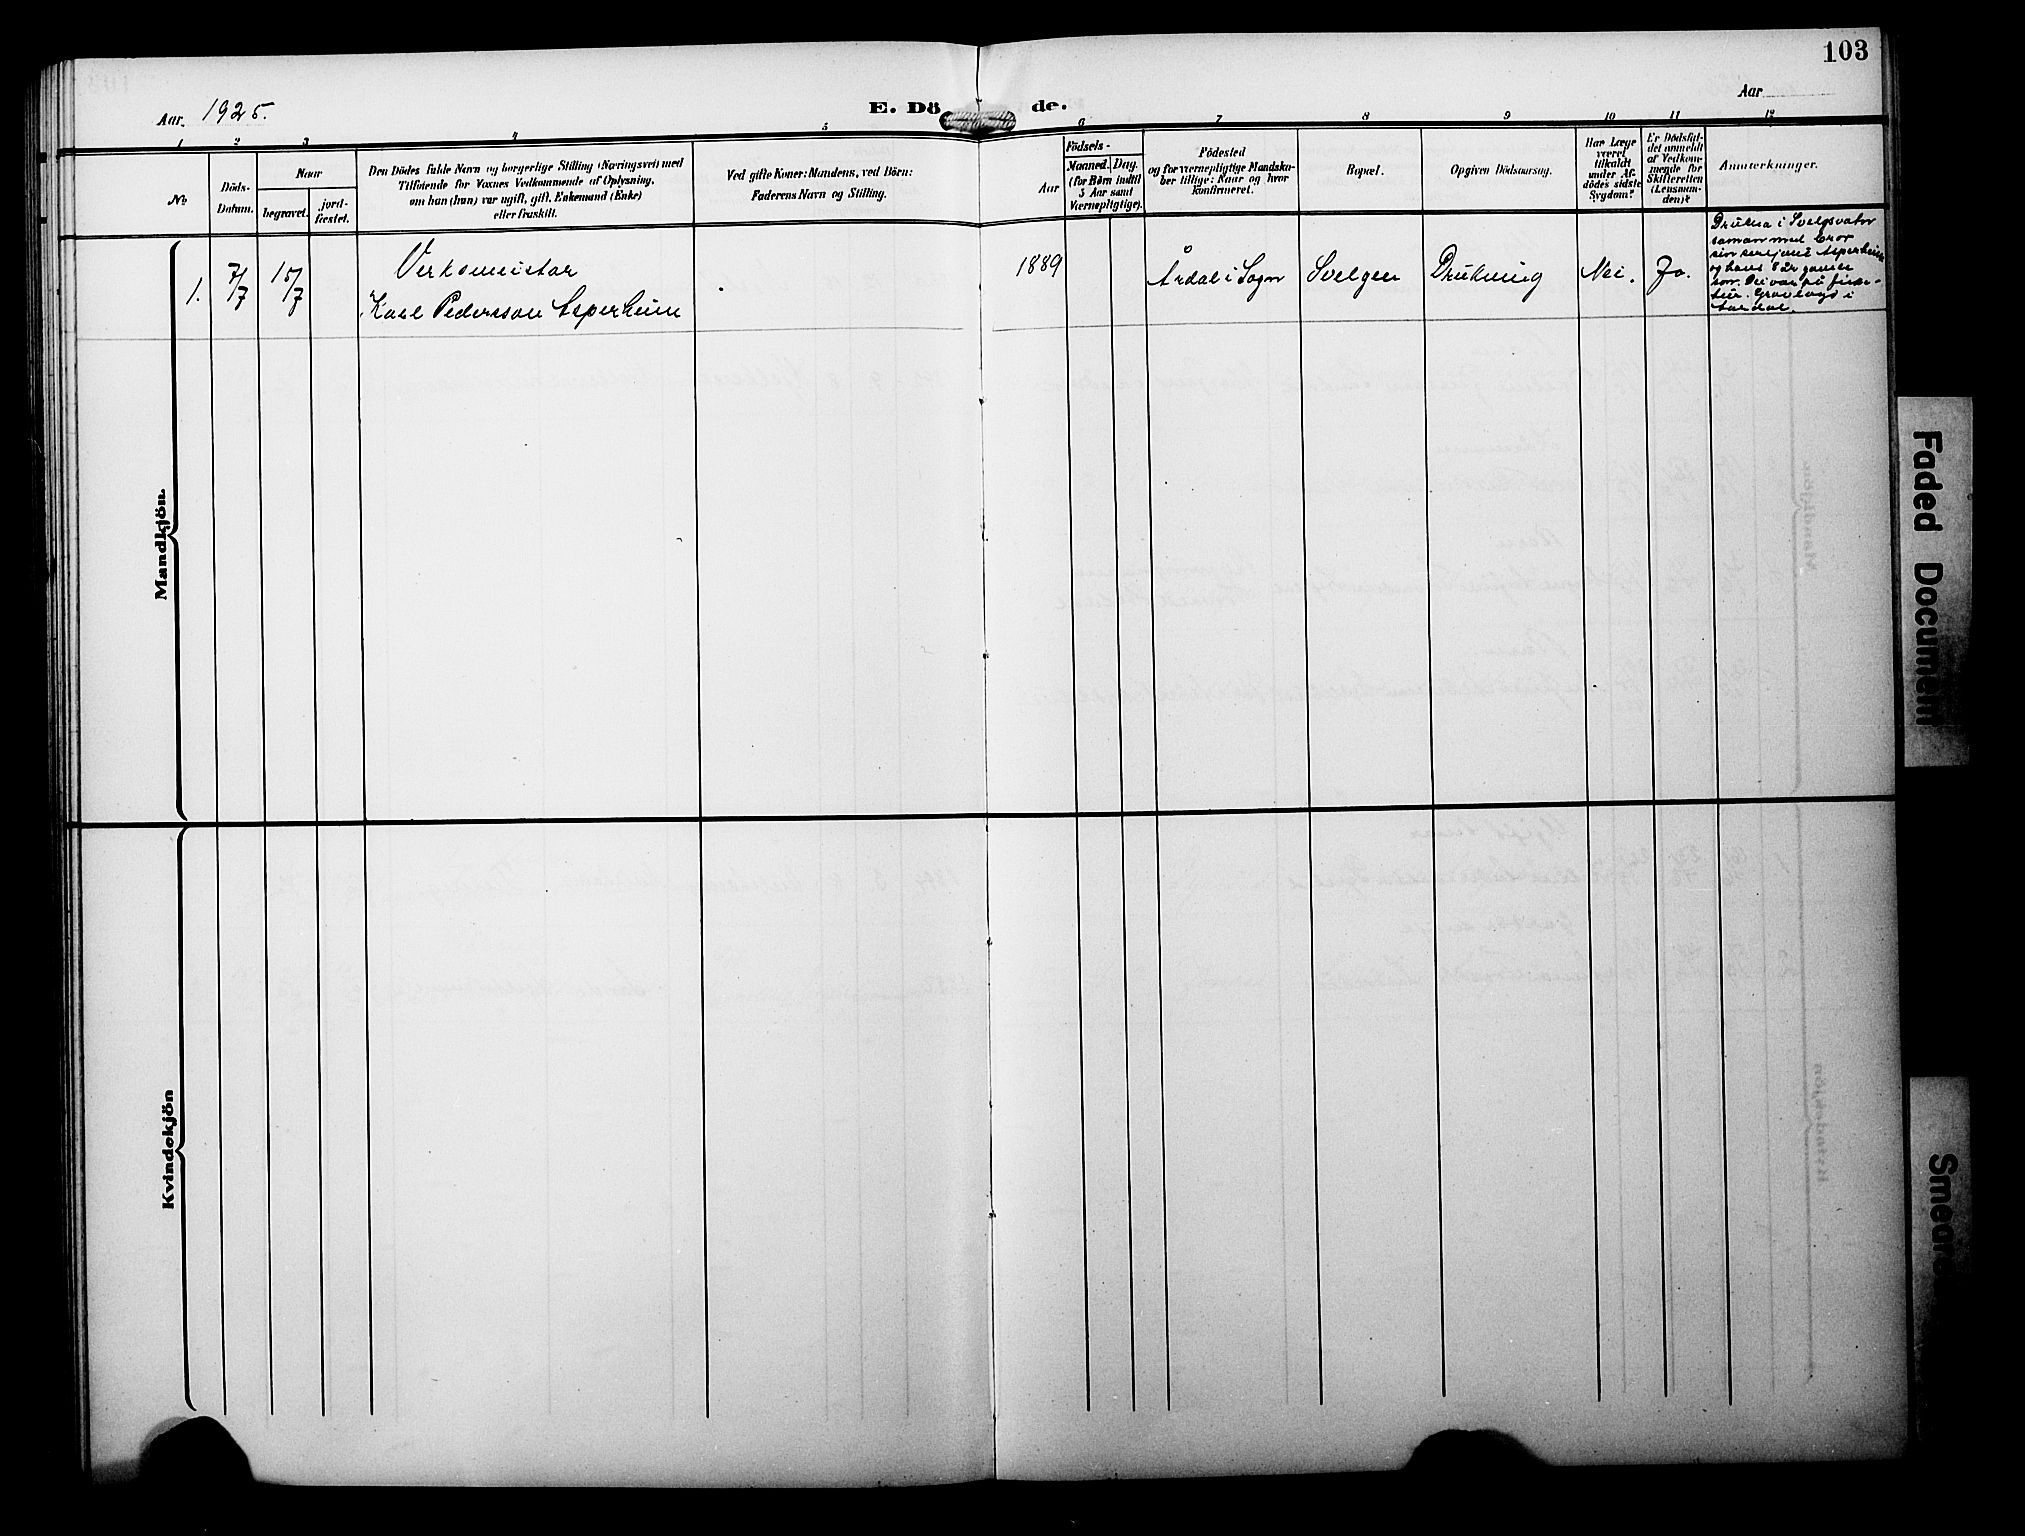 103
Aar 1925.
E. Dö de.
Aar
1 2 3 4 5 6 7 8 9 10 11 12
No
Döds-
Datum.
Naar
begravet.
jord-
fæstet.
Den Dödes fulde Navn og borgerlige Stilling (Næringsvei) med
Tilföiende for Voxnes Vedkommende af Oplysning,
om han (hun) var ugift, gift, Enkemand (Enke)
eller fraskilt.
Ved gifte Koner: Mandens, ved Börn:
Faderens Navn og Stilling.
Födsels-
Aar
Maaned. Dag.
(for Börn indtil
3 Aar samt
Værnepligtige).
Födested
og for værnepligtige Mandska-
ber tillige: Naar og hvor
konfirmeret.
Bopæl.
Opgiven Dödsaarsag.
Har Læge
været
tilkaldt
under Af-
dödes sidste
Sygdom?
Er Dödsfal-
det anmeldt
af Vedkom-
mende for
Skifteretten
(Lensman-
den)?
Anmærkninger.
Mandkjön.
1. 7/7 15/7
Verksmeistar
Karl Pedersson Asperheim
1889
Årdal i Sogn
Svelgen
Drukning
Nei.
Ja.
Drukna i Svelgsvatn
saman med bror
sin Asperheim
og hans 8 år gamle
son. Dei var på fiske-
tur. Gravlagd i
Aardal.
Kvindekjön
Faded Document
Smeare